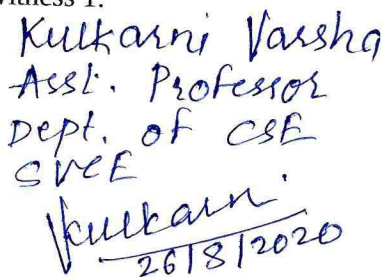 Witness 1:
Kulkarni Varsha
Asst. Professor
Dept. of CSE
SVCE
VKulkarn.
26/8/2020